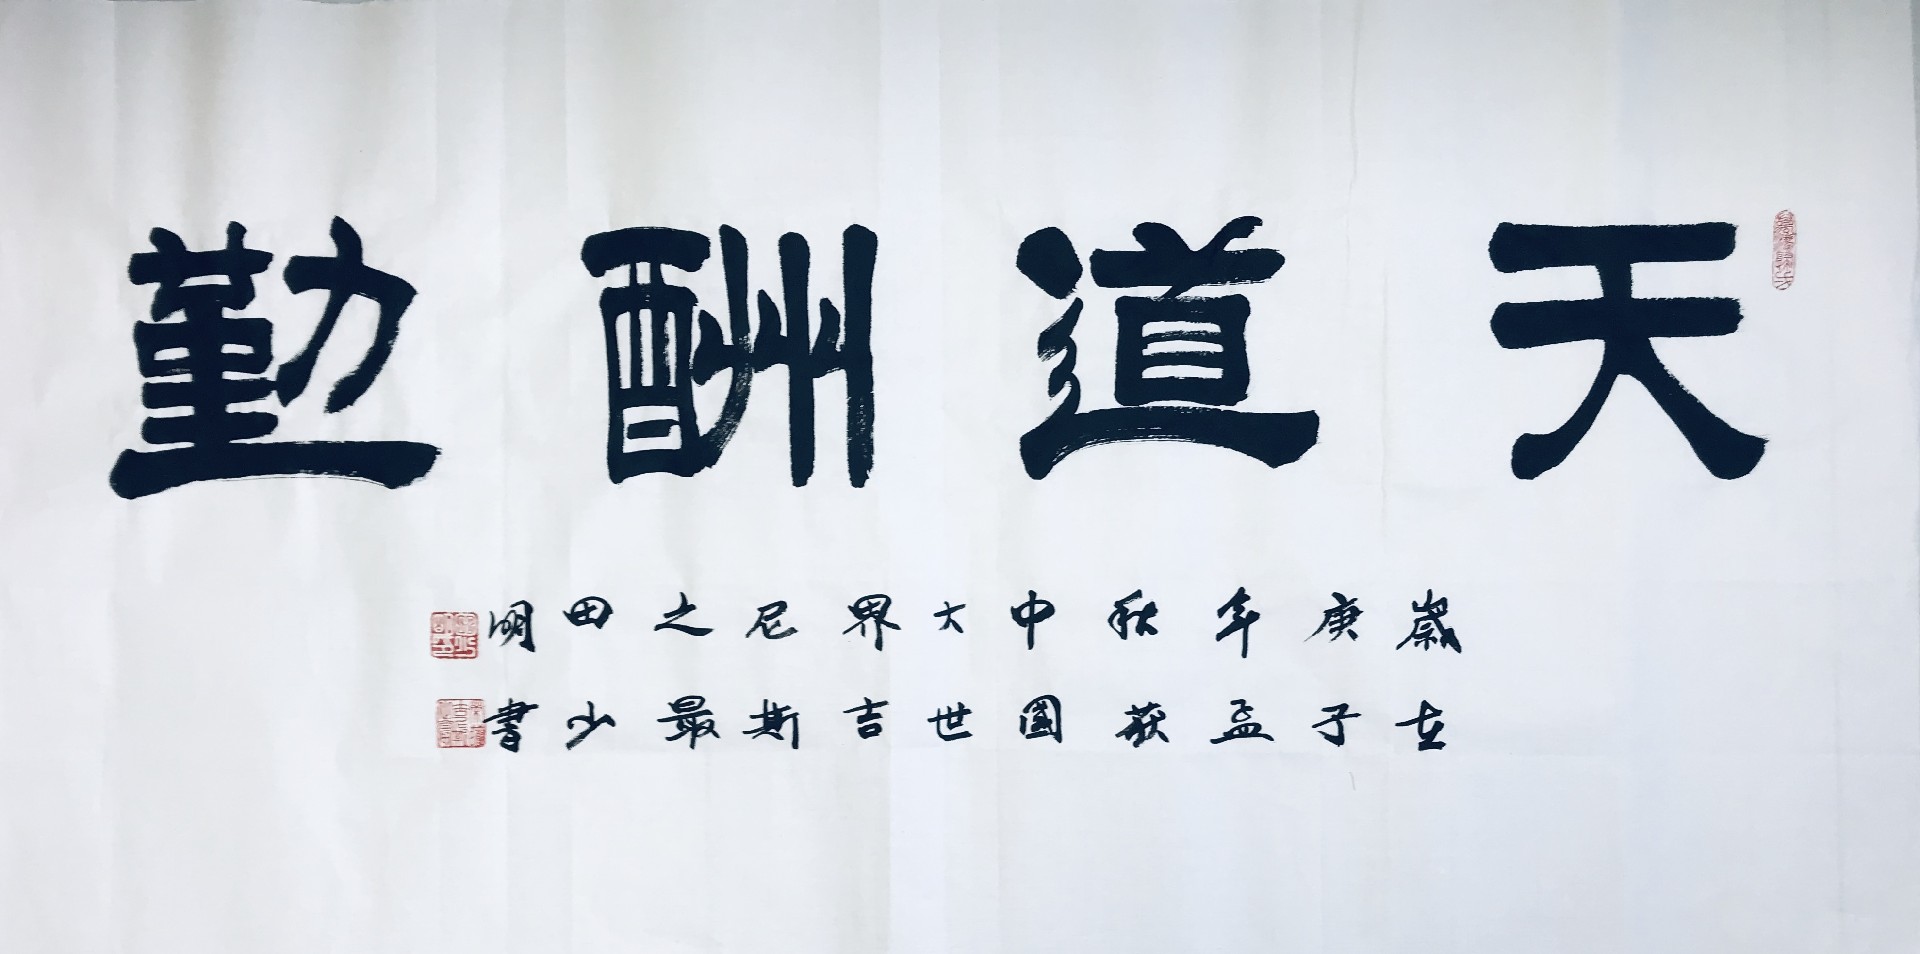 天道酬勤
歲在
庚子
年孟
秋获
中國
大世
界吉
尼斯
之最
田少
明書